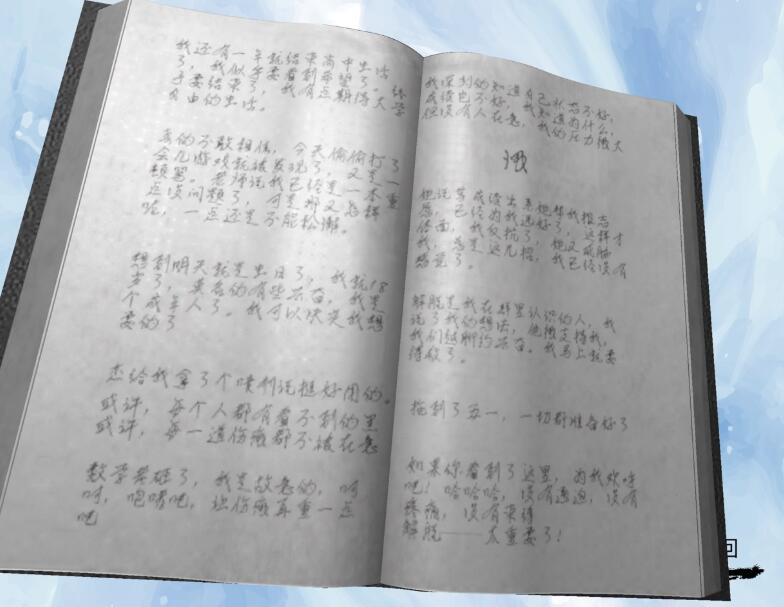 我还有一年就结束高中生活
了，我似乎要看到希望了。终
于要结束了，我有点期待大学
自由的生活。
真的不敢相信，今天偷偷打了
会儿游戏就被发现了，又是一
顿骂。老师说我已经是一本重
点没问题了，可是那又怎样
呢，一点还是不能松懈。
想到明天就是生日了，我就18
岁了，莫名的有些兴奋，我是
个成年人了。我可以决定我想
要的了
杰给我拿了个喷剂说挺好用的。
或许，每个人都有看不到的黑
或许，每一道伤疤都不被在意
数学考砸了，我是故意的，呵
呵，咆哮吧，让伤疤再重一点
吧
我深刻的知道自己状态不好，
成绩也不好，我知道为什么，
但没有人在意，我的压力很大
她说等成绩出来她帮我报志
愿，已经为我选好了，这样才
体面，我反抗了，她又威胁
我，总是这几招，我已经没有
感觉了。
解脱是我在群里认识的人，我
说了我的想法，他很支持我，
我们越聊约兴奋。我马上就要
得救了。
拖到了五一，一切都准备好了
如果你看到了这里，为我欢呼
吧！哈哈哈，没有逼迫，没有
疼痛，没有束缚
解脱——太重要了！
回